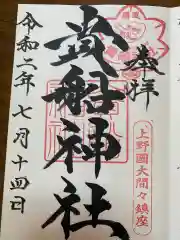 奉拝
上野國大間々鎮座
貴船神社
令和二年七月十四日